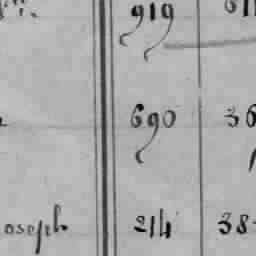 919
690 36
oseph 214 38